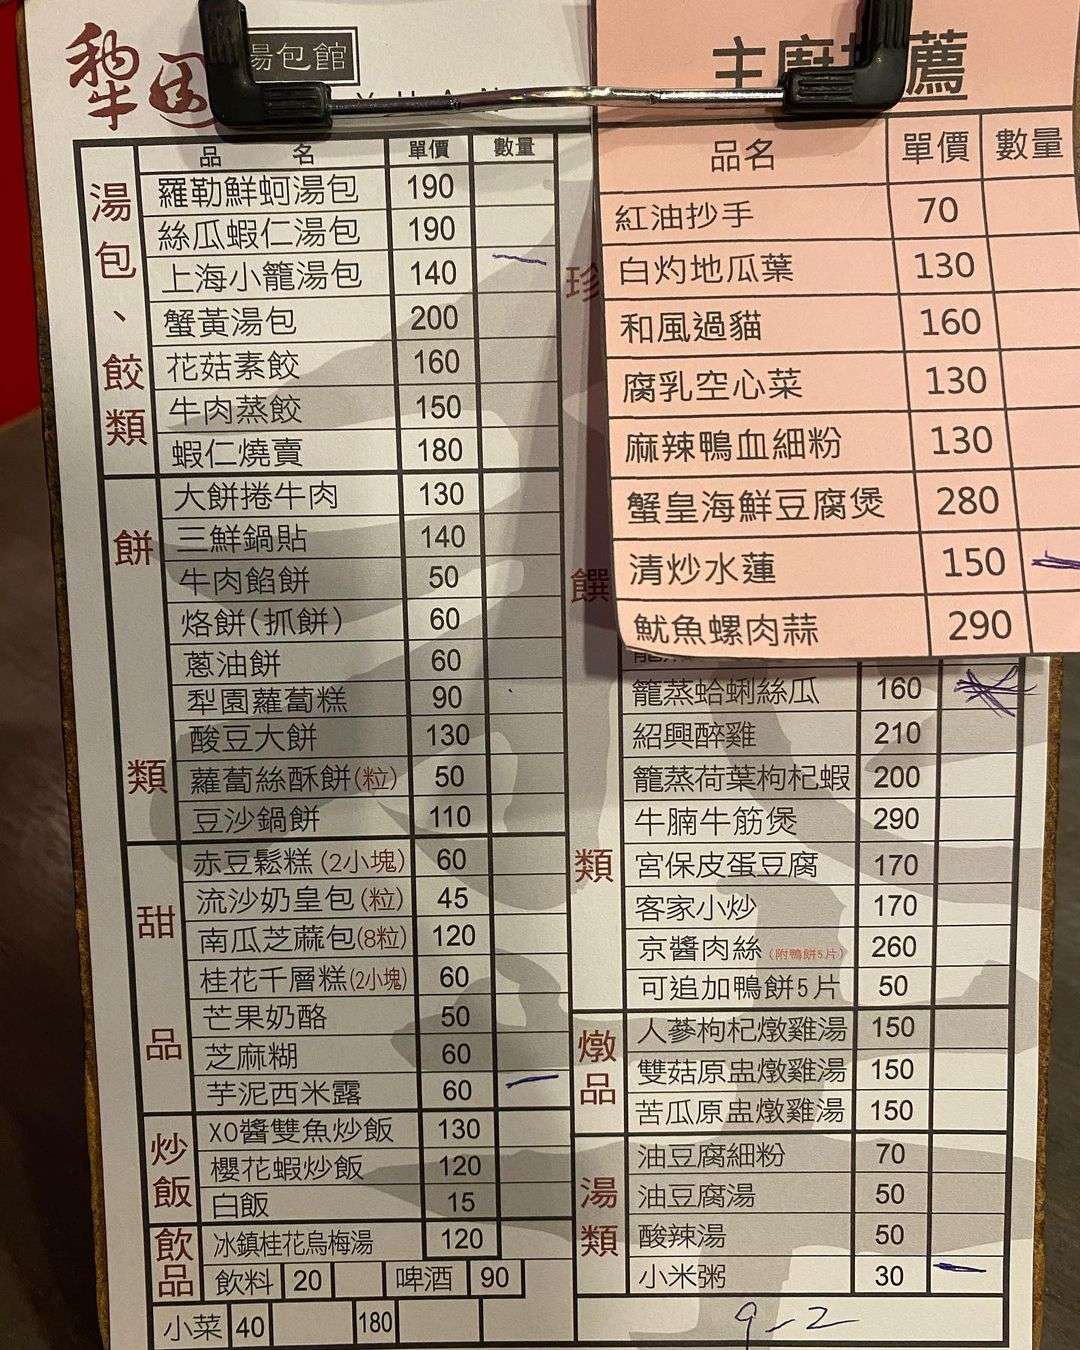 犁園湯包館
品名 單價 數量
湯包、餃類
羅勒鮮蚵湯包 190
絲瓜蝦仁湯包 190
上海小籠湯包 140
蟹黃湯包 200
花菇素餃 160
牛肉蒸餃 150
蝦仁燒賣 180
餅類
大餅捲牛肉 130
三鮮鍋貼 140
牛肉餡餅 50
烙餅(抓餅) 60
蔥油餅 60
犁園蘿蔔糕 90
酸豆大餅 130
蘿蔔絲酥餅(粒) 50
豆沙鍋餅 110
甜品
赤豆鬆糕(2小塊) 60
流沙奶皇包(粒) 45
南瓜芝蔴包(8粒) 120
桂花千層糕(2小塊) 60
芒果奶酪 50
芝麻糊 60
芋泥西米露 60
炒飯
XO醬雙魚炒飯 130
櫻花蝦炒飯 120
白飯 15
飲品
冰鎮桂花烏梅湯 120
飲料 20 啤酒 90
小菜 40 180
主廚推薦
品名 單價 數量
紅油抄手 70
白灼地瓜葉 130
和風過貓 160
腐乳空心菜 130
麻辣鴨血細粉 130
蟹皇海鮮豆腐煲 280
清炒水蓮 150
魷魚螺肉蒜 290
珍饌類
籠蒸蛤蜊絲瓜 160
紹興醉雞 210
籠蒸荷葉枸杞蝦 200
牛腩牛筋煲 290
宮保皮蛋豆腐 170
客家小炒 170
京醬肉絲(附鴨餅5片) 260
可追加鴨餅5片 50
燉品
人蔘枸杞燉雞湯 150
雙菇原盅燉雞湯 150
苦瓜原盅燉雞湯 150
湯類
油豆腐細粉 70
油豆腐湯 50
酸辣湯 50
小米粥 30
9-2